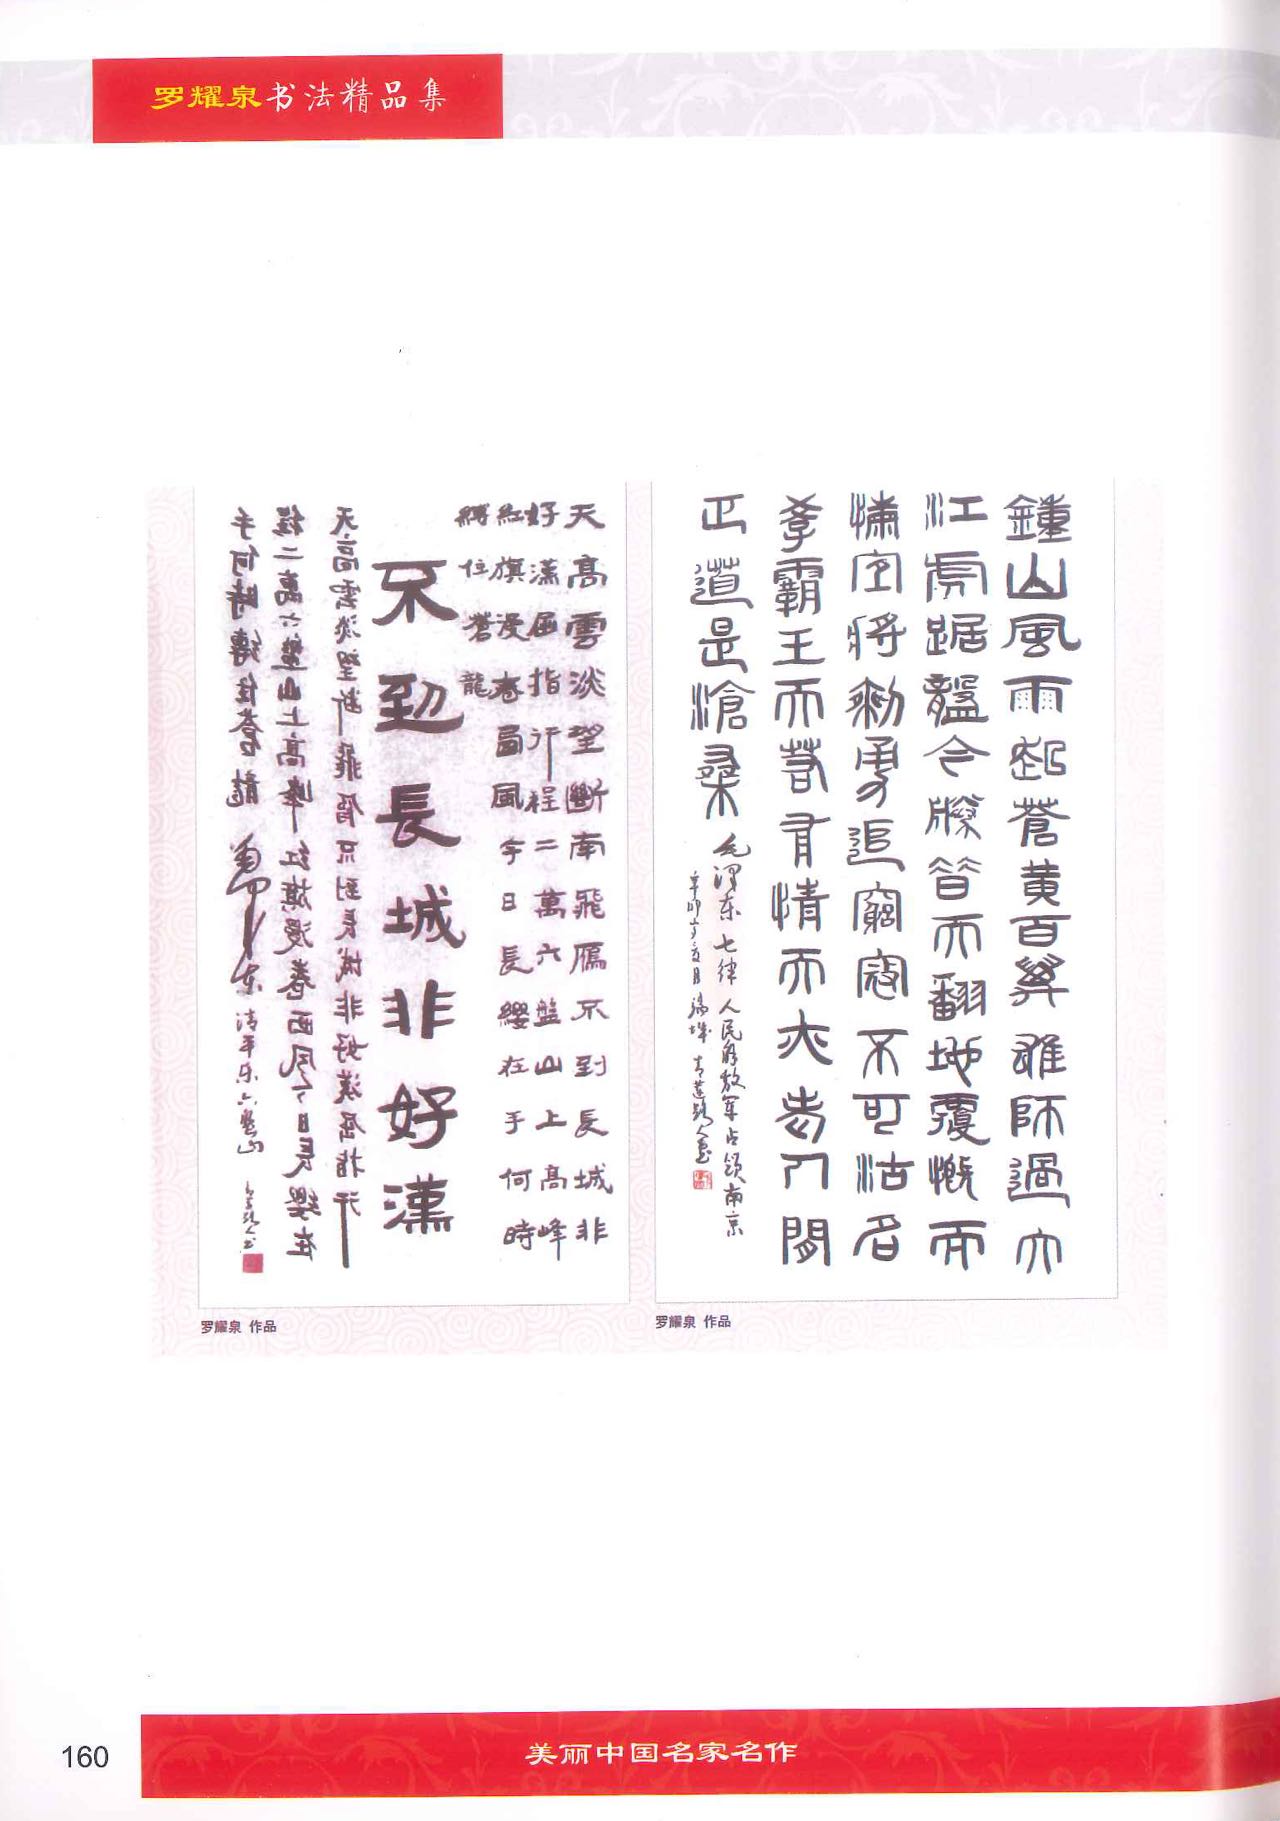 罗耀泉书法精品集
鍾山風雨起蒼黄百萬雄師過大
江虎踞龍盤今勝昔天翻地覆慨而
慷宜將剩勇追窮寇不可沽名
學霸王天若有情天亦老人間
正道是滄桑
毛澤东七律人民解放军占领南京
罗耀泉 作品
天高雲淡望斷南飛雁不到長城非
好漢屈指行程二萬六盤山上高峰
紅旗漫卷西風今日長纓在手何時
縛住蒼龍
不到長城非好漢
天高雲淡望斷飛雁不到長城非好漢屈指行
程二萬六盤山上高峰红旗漫卷西风今日長纓在
手何時縛住蒼龍 清平乐六盘山
罗耀泉 作品
160
美丽中国名家名作